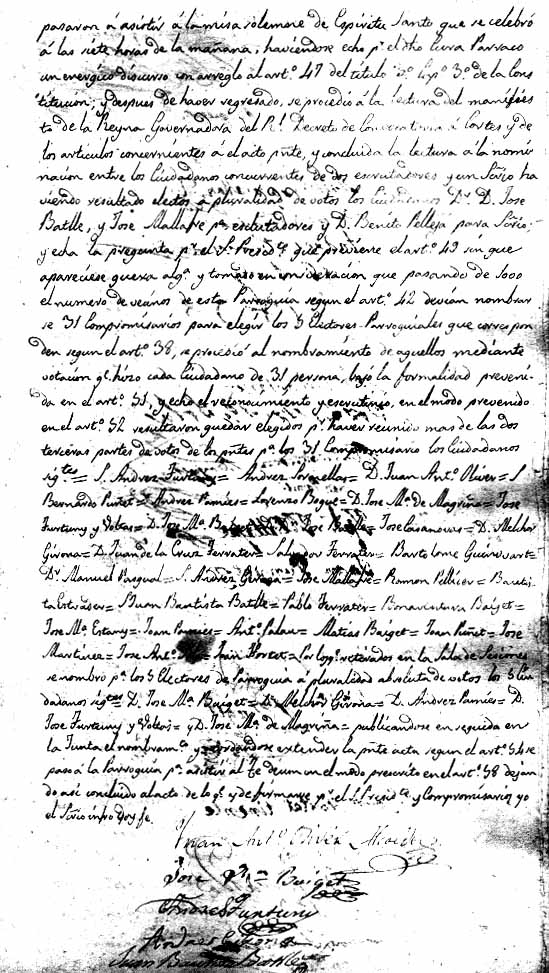 pasaron á asistir á la misa solemne de Espiritu Santo que se celebró
á las siete horas de la mañana, haviendose echo pr. el dho Cura Parraco
un energico discurso con arreglo al artº. 47 del titulo 3º. Capº 3º. de la Cons
titucion; y despues de haver regresado, se procedió á la lectura del manifies
to de la Reyna Governadora del Rl. Decreto de Convocatoria á Cortes y de
los articulos concernientes á el acto pnte, y concluida la lectura á la nomi
nacion entre los Ciudadanos concurrentes de dos escrutadores y un Srio ha
viendo resultado electos á pluralidad de votos los Ciudadanos Dr. D. Jose
Batlle, y Jose Mallafre pa. escrutadores y D. Benito Pelleja para Srio:
y echa la pregunta pr. el Sr. Presidte. que previene el artº. 49 sin que
apareciese quexa alga. y tomado en consideracion que pasando de 5000
el numero de vecinos de esta Parroquia segun el artº. 42 devian nombrar
se 31 Compromisarios para elegir los 5 Electores Parroquiales que correspon
den segun el artº. 38, se procedió al nombramiento de aquellos mediante
votacion qe. hizo cada Ciudadano de 31 persona, bajo la formalidad preveni
da en el artº. 51, y echo el reconocimiento y escrutinio, en el modo prevenido
en el artº. 52 resultaron quedar elegidos pr. haver reunido mas de las dos
terceras partes de votos de los pntes pa. los 31 Compromisario los Ciudadanos
sigtes = S. Andres Furtuny = Andres = D. Juan Antº. Oliver = S
Bernardo Puñet = Andres Pamies = Lorenzo Boqué = D. Jose Mª. de Magriñá = Jose
Furtuny y Voltas = D. Jose Mª. = Jose = Jose Casanovas = D. Melchor
Girona = D. Juan de la Cruz Ferrater = Salvador Ferrater = Bartolome =
Dr. Manuel Pasqual = S. Andres = Jose Mallafre = Ramon Pellicer = Bautis
ta = Juan Bautista Batlle = Pablo Ferrater = Bonaventura Baiget =
Jose Mª Estany = Joan Pamies = Antº. Palau = Matias Baiget = Joan Puñet = Jose
Martinez = Jose Antº. = Jain Hortet = Por los qe. retirados en la Sala de Sesiones
se nombró pa. los 5 Electores de Parroquia á pluralidad absoluta de votos los 5 Ciu
dadanos sigtes = D. Jose Mª. Baiget = D. Melchor Girona = D. Andres Pamies = D.
Jose Furtuny y Voltas = y D. Jose Mª. de Magriñá = publicandose en seguida en
la Junta el nombramto. y acordandose extender la pnte acta segun el artº. 54 se
pasó á la Parroquia pa. asistir al Te deum en el modo prescrito en el artº. 58 dejan
do asi concluido al acto de lo qe. y de firmarse pr. el Sr. Presidte. y Compromisarios yo
el Srio infro doy fe.
Juan Antº. Oliver Alcalde
Jose Mª. Baiget
Andres Furtuny
Andres
Juan Bautista Batlle